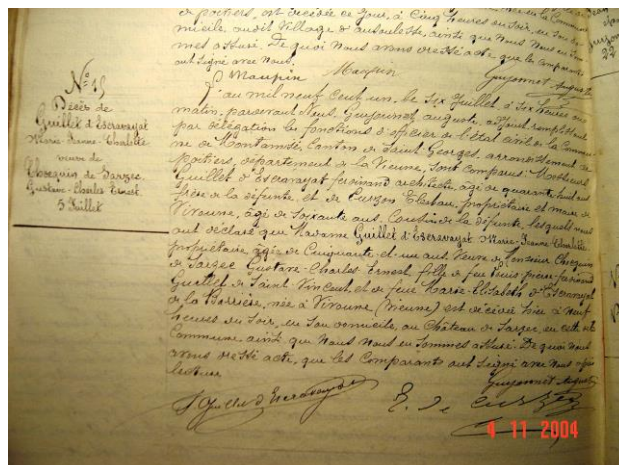 de poitiers, est décédée ce jour, à cinq heures du soir, en son do
micile, audit Village d'
mes assuré. De quoi Nous avons dressé acte que les comparants
ont signé avec Nous.
Maupin Guyonnet Auguste
22
N° 15
Décès de
Guillet d'Escravayat
Marie-Jeanne-Charlotte
veuve de
Chocquin de Sarzec
Gustave-Charles Ernest
5 Juillet
L'an mil neuf cent un, le six Juillet, à six heures du
matin, pardevant Nous, Guyonnet auguste, adjoint remplissant
par délégation les fonctions d'officier de l'état civil de la Commu
ne de Montamisé, Canton de Saint Georges, arrondissement de
Poitiers, département de la Vienne, sont comparus: Messieurs
Guillet d'Escravayat ferdinand architecte, âgé de quarante huit ans
frère de la défunte, et de Curzon propriétaire et maire de
Vivonne, âgé de soixante ans, Cousin de la défunte, lesquels nous
ont déclaré que Madame Guillet d'Escravayat Marie-Jeanne Charlotte
propriétaire, âgée de Cinquante et un ans, Veuve de Monsieur Chocquin
de Sarzec Gustave-Charles Ernest, fille de feu Louis-pierre-ferdinand
Guillet de Saint Vincent, et de feue Marie-Elisabeth d'Escravayat
de la Barrière, née à Vivonne (Vienne) est décédée hier à neuf
heures du soir, en son domicile, au Château de Sarzec, en cette dite
Commune, ainsi que Nous Nous en sommes assuré. De quoi Nous
avons dressé acte, que les Comparants ont signé avec Nous après
lecture.
Guyonnet Auguste
F Guillet d'Escravayat E. de Curzon
4 11 2004